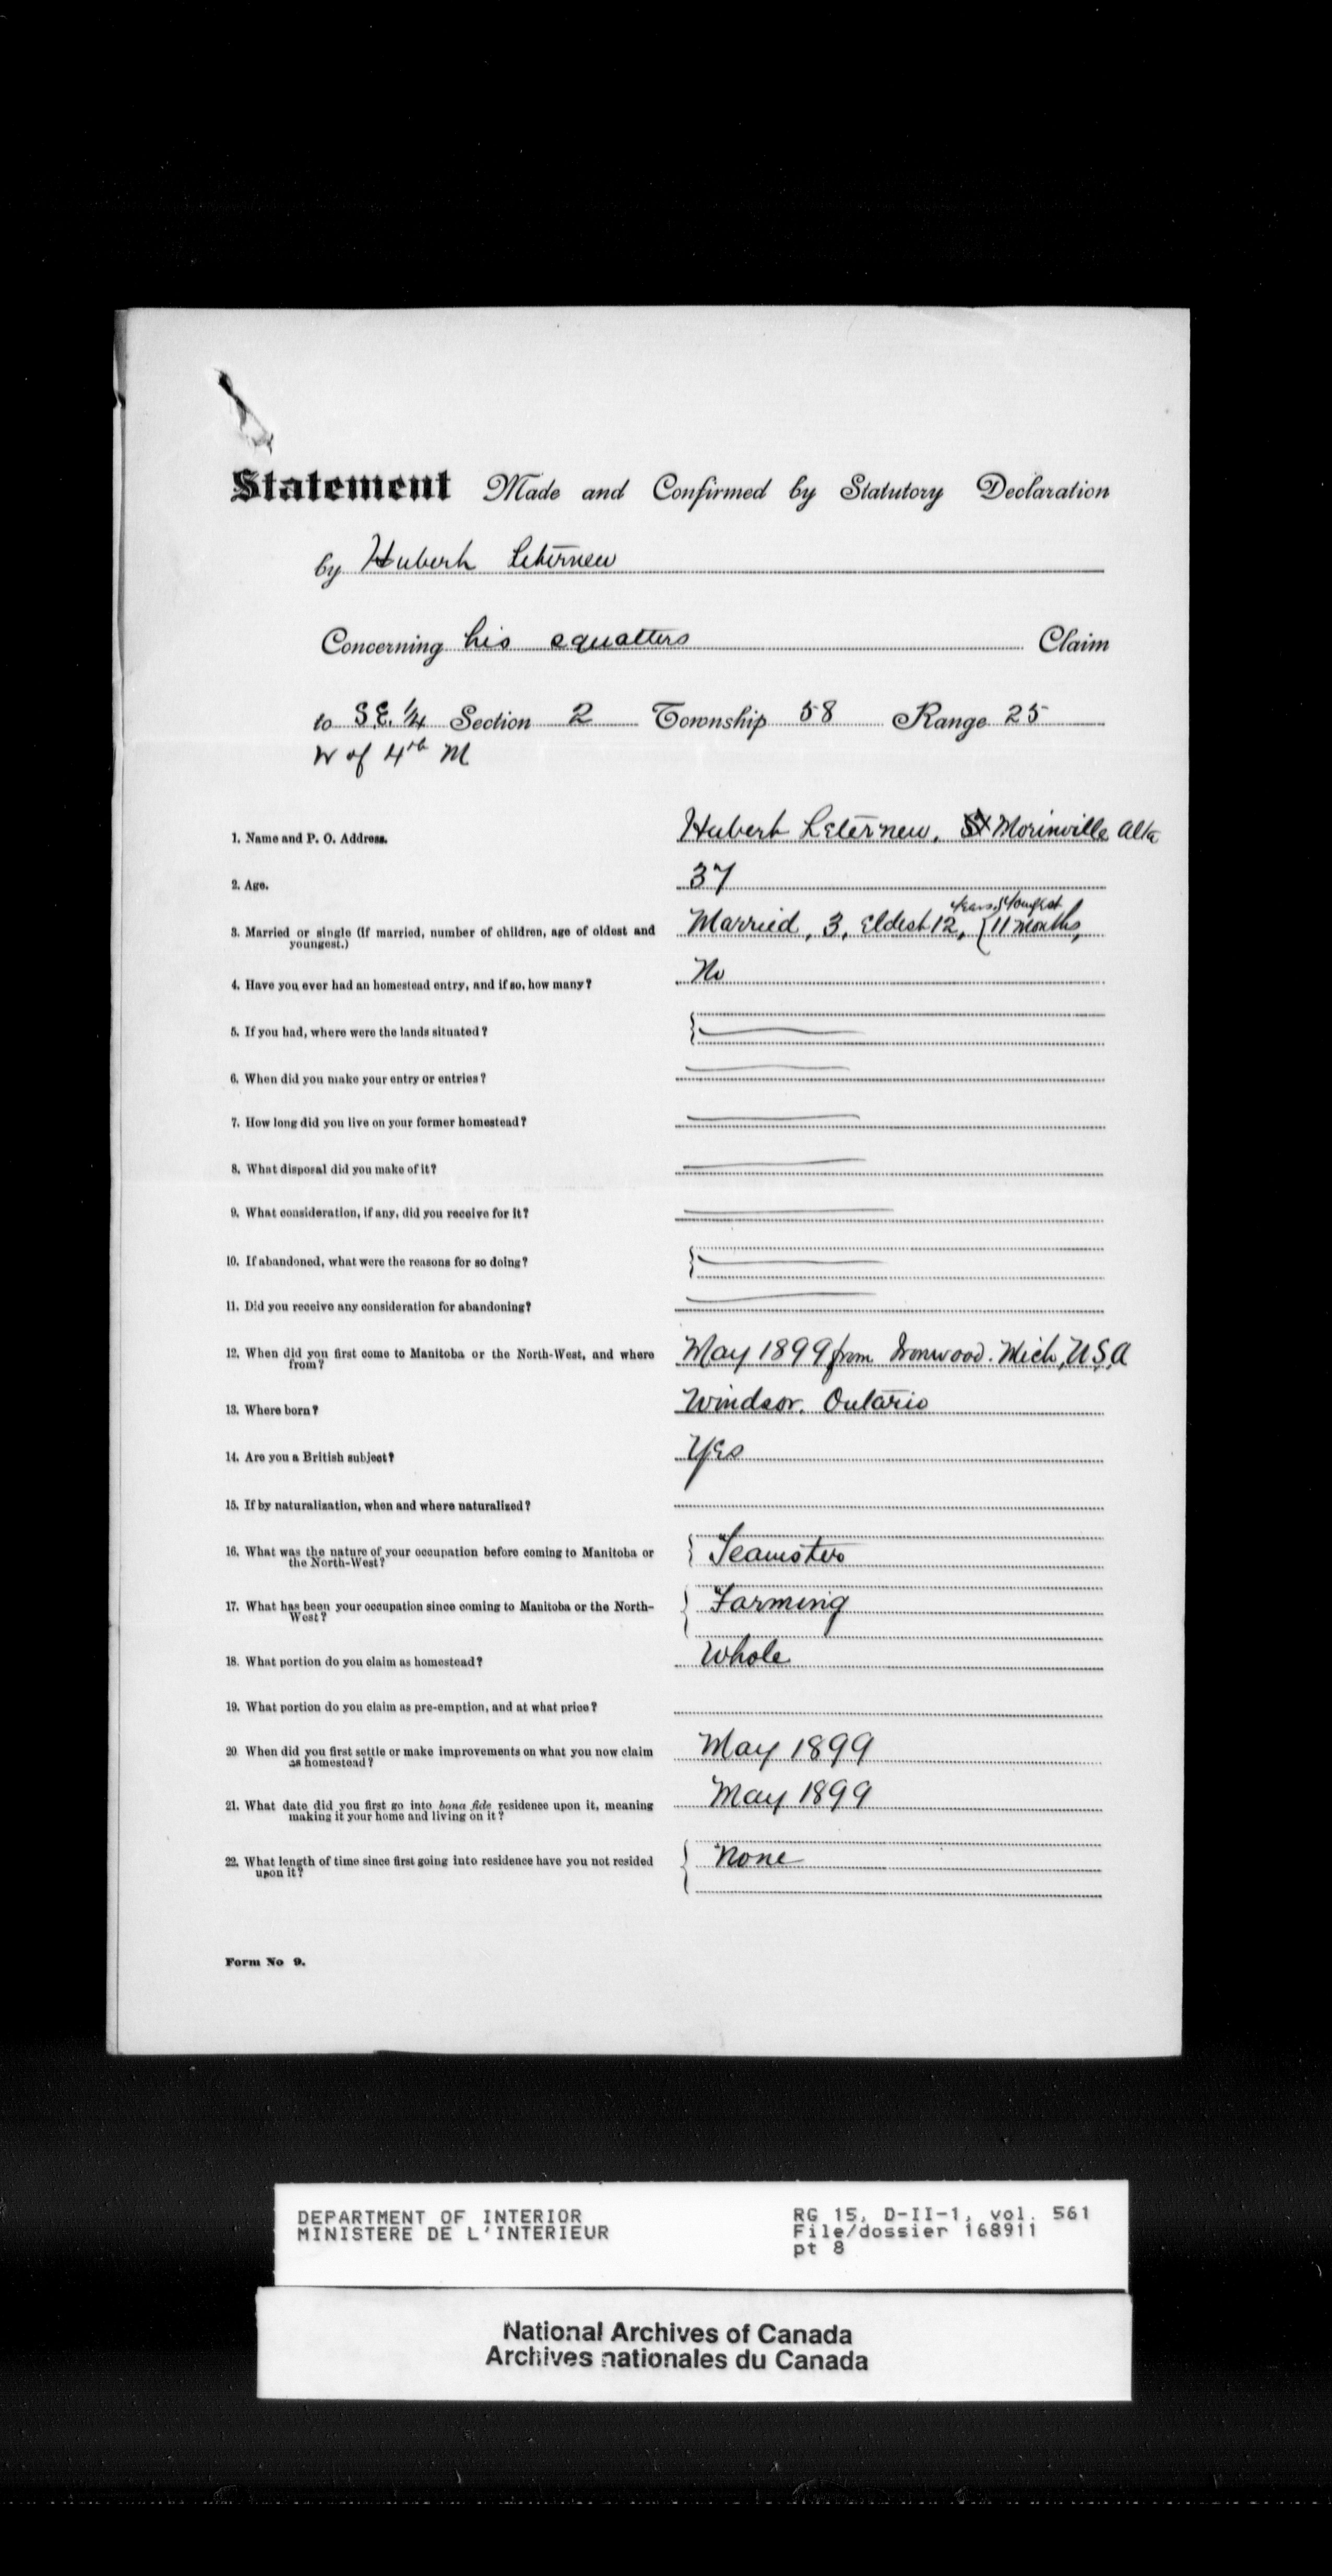 Statement Made and Confirmed by Statutory Declaration
by Hubert Leternew
Concerning his squatters Claim
to S.E. 1/4 Section 2 Township 58 Range 25
W of 4th M
1. Name and P. O. Address. Hubert Leternew, Morinville Alta
2. Age. 37
3. Married or single (If married, number of children, age of oldest and youngest.) Married, 3, Eldest 12 years, Youngest 11 Months,
4. Have you ever had an homestead entry, and if so, how many? No
5. If you had, where were the lands situated?
6. When did you make your entry or entries?
7. How long did you live on your former homestead?
8. What disposal did you make of it?
9. What consideration, if any, did you receive for it?
10. If abandoned, what were the reasons for so doing?
11. Did you receive any consideration for abandoning?
12. When did you first come to Manitoba or the North-West, and where from? May 1899 from Ironwood. Mich, U.S.A
13. Where born? Windsor. Ontario
14. Are you a British subject? Yes
15. If by naturalization, when and where naturalized?
16. What was the nature of your occupation before coming to Manitoba or the North-West? Teamster
17. What has been your occupation since coming to Manitoba or the North-West? Farming
18. What portion do you claim as homestead? Whole
19. What portion do you claim as pre-emption, and at what price?
20 When did you first settle or make improvements on what you now claim as homestead? May 1899
21. What date did you first go into bona fide residence upon it, meaning making it your home and living on it? May 1899
22. What length of time since first going into residence have you not resided upon it? None
Form No 9.
DEPARTMENT OF INTERIOR
MINISTERE DE L'INTERIEUR
RG 15, D-II-1, vol. 561
File/dossier 168911
pt 8
National Archives of Canada
Archives nationales du Canada